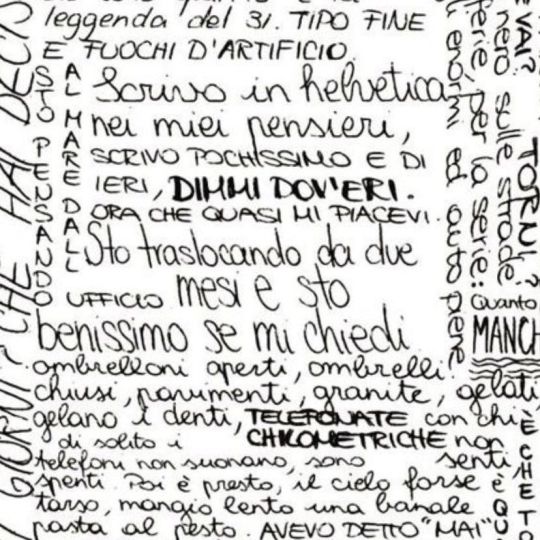 leggenda del 31. TIPO FINE
E FUOCHI D'ARTIFICIO.
Scrivo in helvetica
nei miei pensieri,
SCRIVO POCHISSIMO E DI
IERI, DIMMI DOV'ERI.
ORA CHE QUASI MI PIACEVI.
Sto traslocando da due
mesi e sto
benissimo se mi chiedi
ombrelloni aperti, ombrelli
chiusi, pavimenti, granite, gelati,
gelano i denti, TELEFONATE con chi
di solito i CHILOMETRICHE non
telefoni non suonano, sono senti,
spenti. Poi è presto, il cielo forse è
tardo, mangio lento una banale
pasta al pesto. AVEVO DETTO "MAI"
STO PENSANDO
AL MARE DALL
UFFICIO
GIORNI CHE HAI DECIS
enormi ed auto piene
per la serie:
nero sulle strade.
VAI?
TORNI?
Quanto
MANCH
È CHE TO